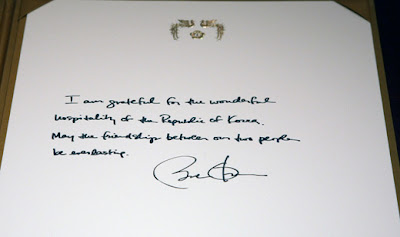 I am grateful for the wonderful
hospitality of the Republic of Korea.
May the friendship between our two people
be everlasting.